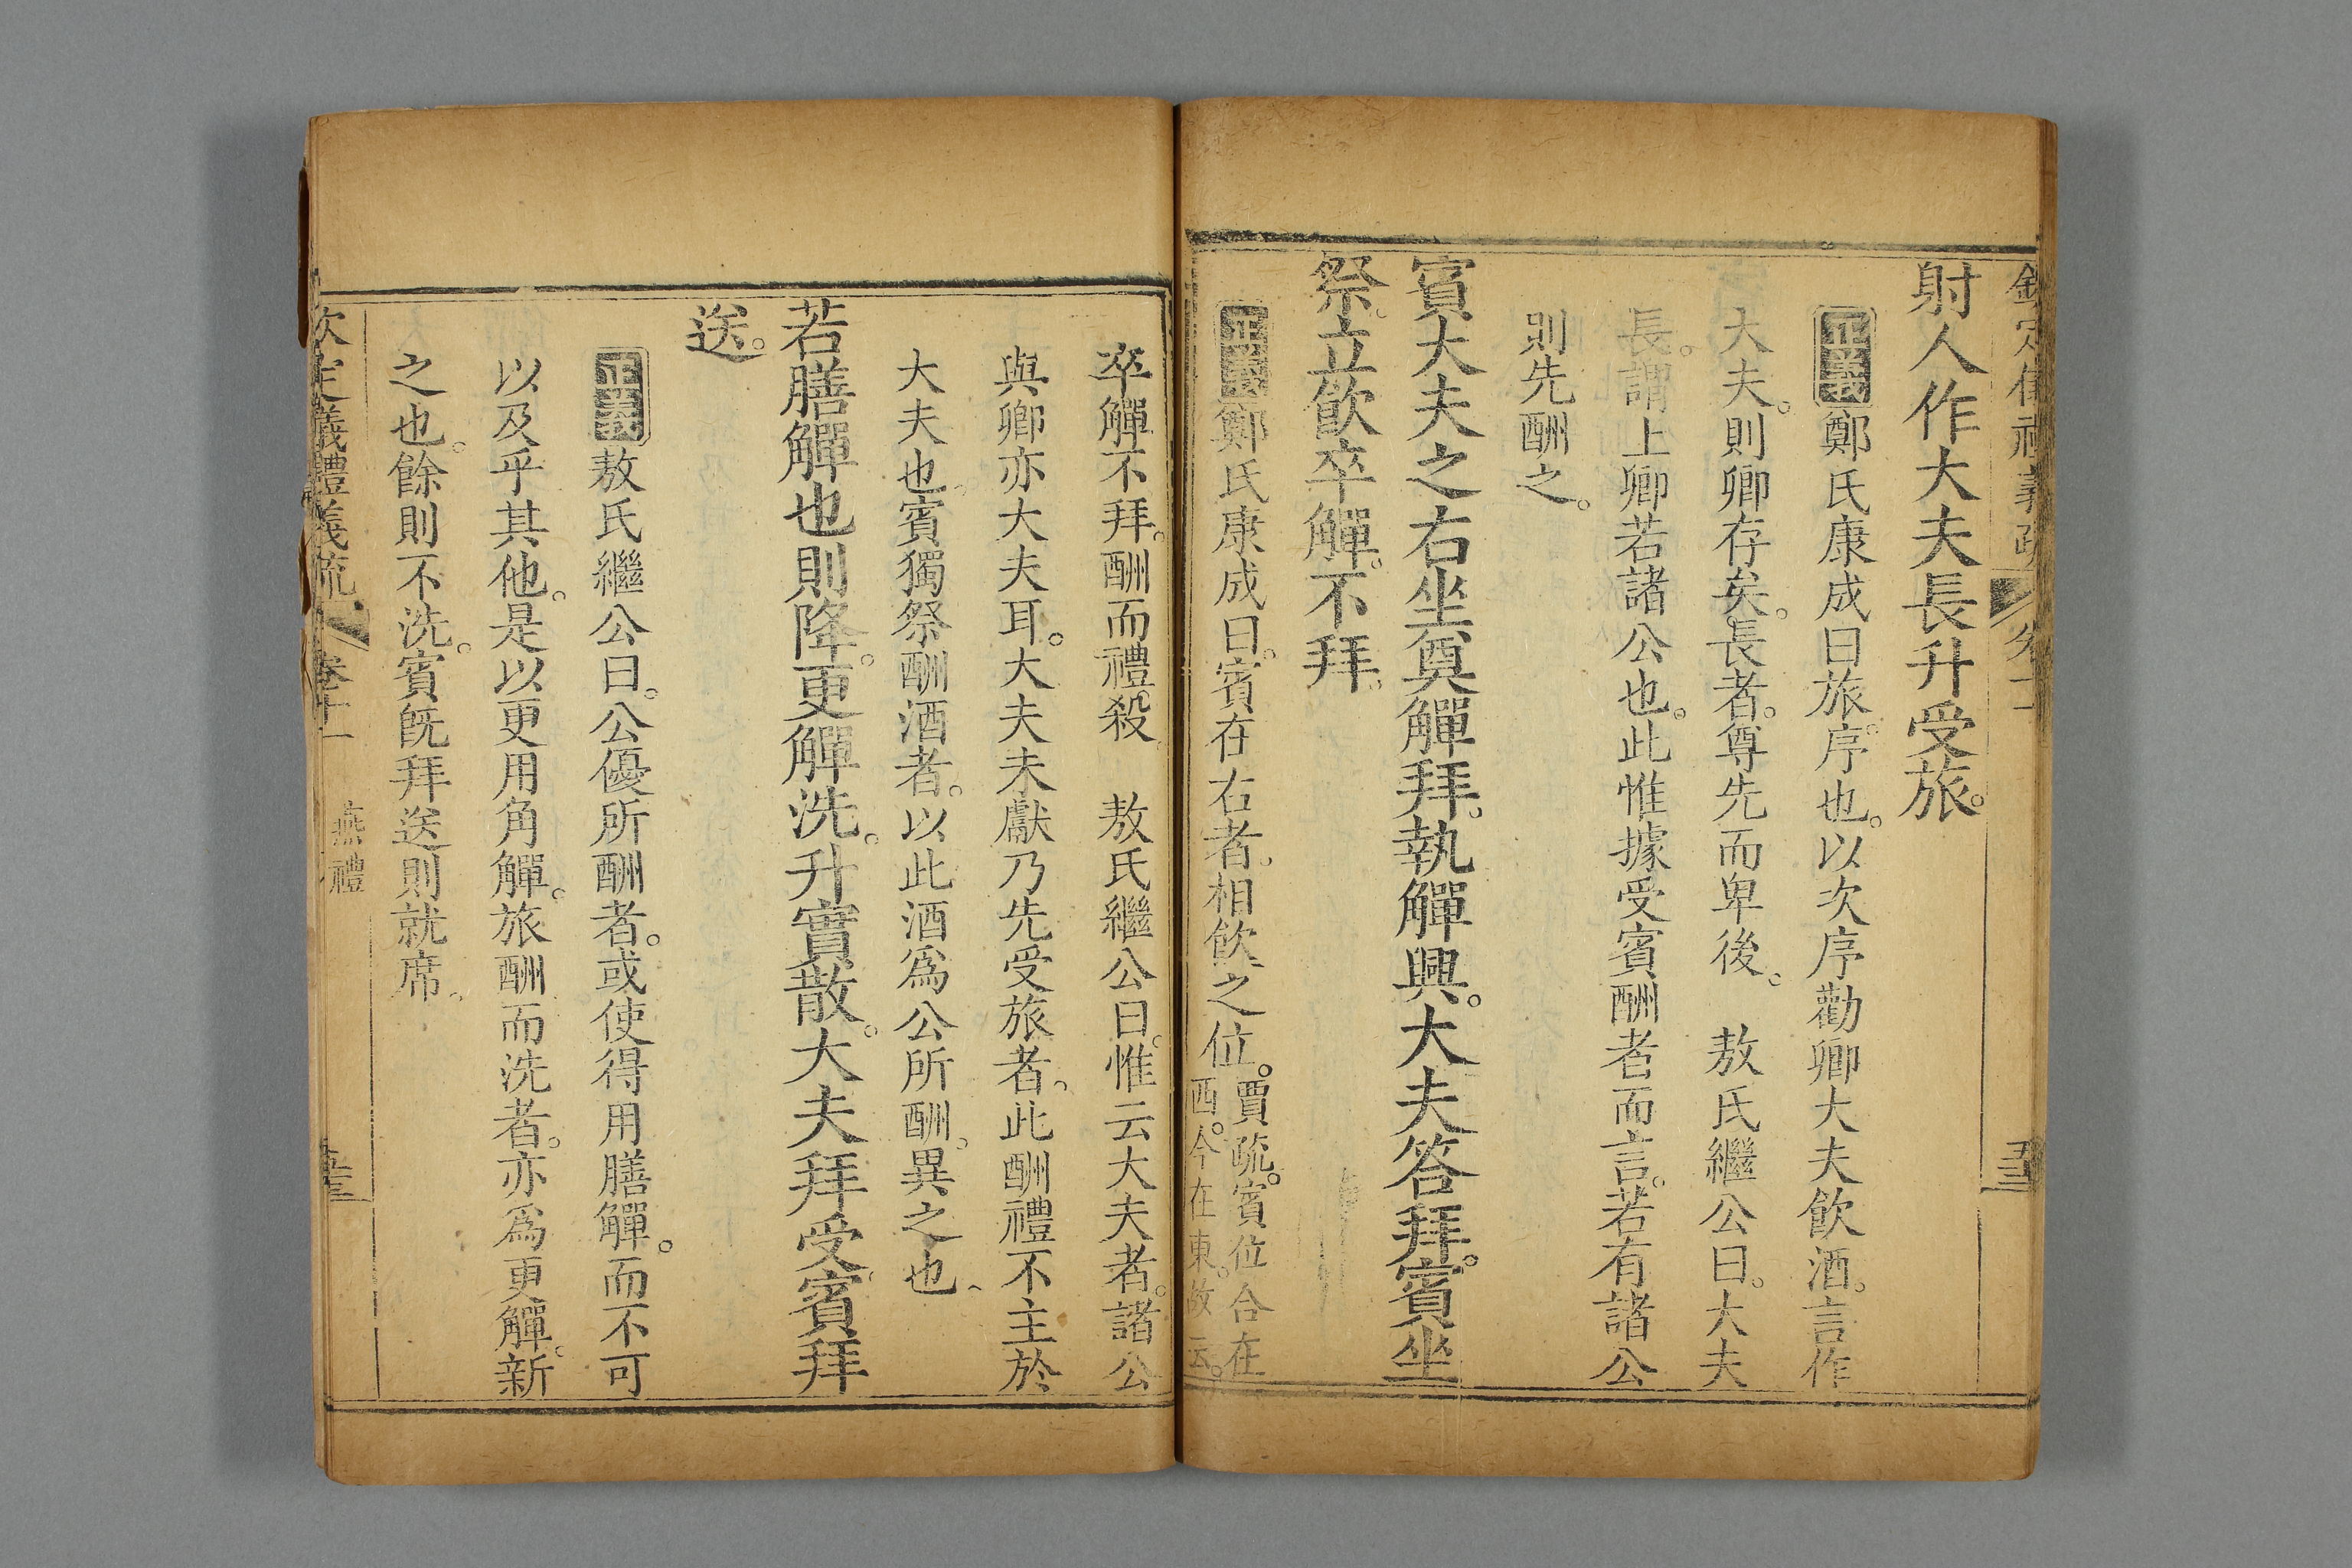 射人作大夫長升受旅。
正義鄭氏康成曰旅。序也。以次序勸卿大夫飲酒。言作
大夫。則卿存矣。長者。尊先而卑後。　敖氏繼公曰。大夫
長。謂上卿若諸公也。此惟據受賓酬者而言。若有諸公
則先酬之。
賓大夫之右坐奠觶拜。執觶興。大夫答拜。賓坐
祭。立飲卒觶。不拜。
正義鄭氏康成曰。賓在右者。相飲之位。賈疏。賓位合在
西。今在東。故云。
卒觶不拜。酬而禮殺　敖氏繼公曰。惟云大夫者。諸公
與卿亦大夫耳。大夫未獻乃先受旅者。此酬禮不主於
大夫也。賓獨祭酬酒者。以此酒爲公所酬。異之也。
若膳觶也則降。更觶洗。升實散。大夫拜受。賓拜
送。
正義敖氏繼公曰。公優所酬者。或使得用膳觶。而不可
以及乎其他。是以更用角觶。旅酬而洗者。亦爲更觶。新
之也。餘則不洗。賓旣拜送則就席。
欽定儀禮義疏 卷十一 燕禮